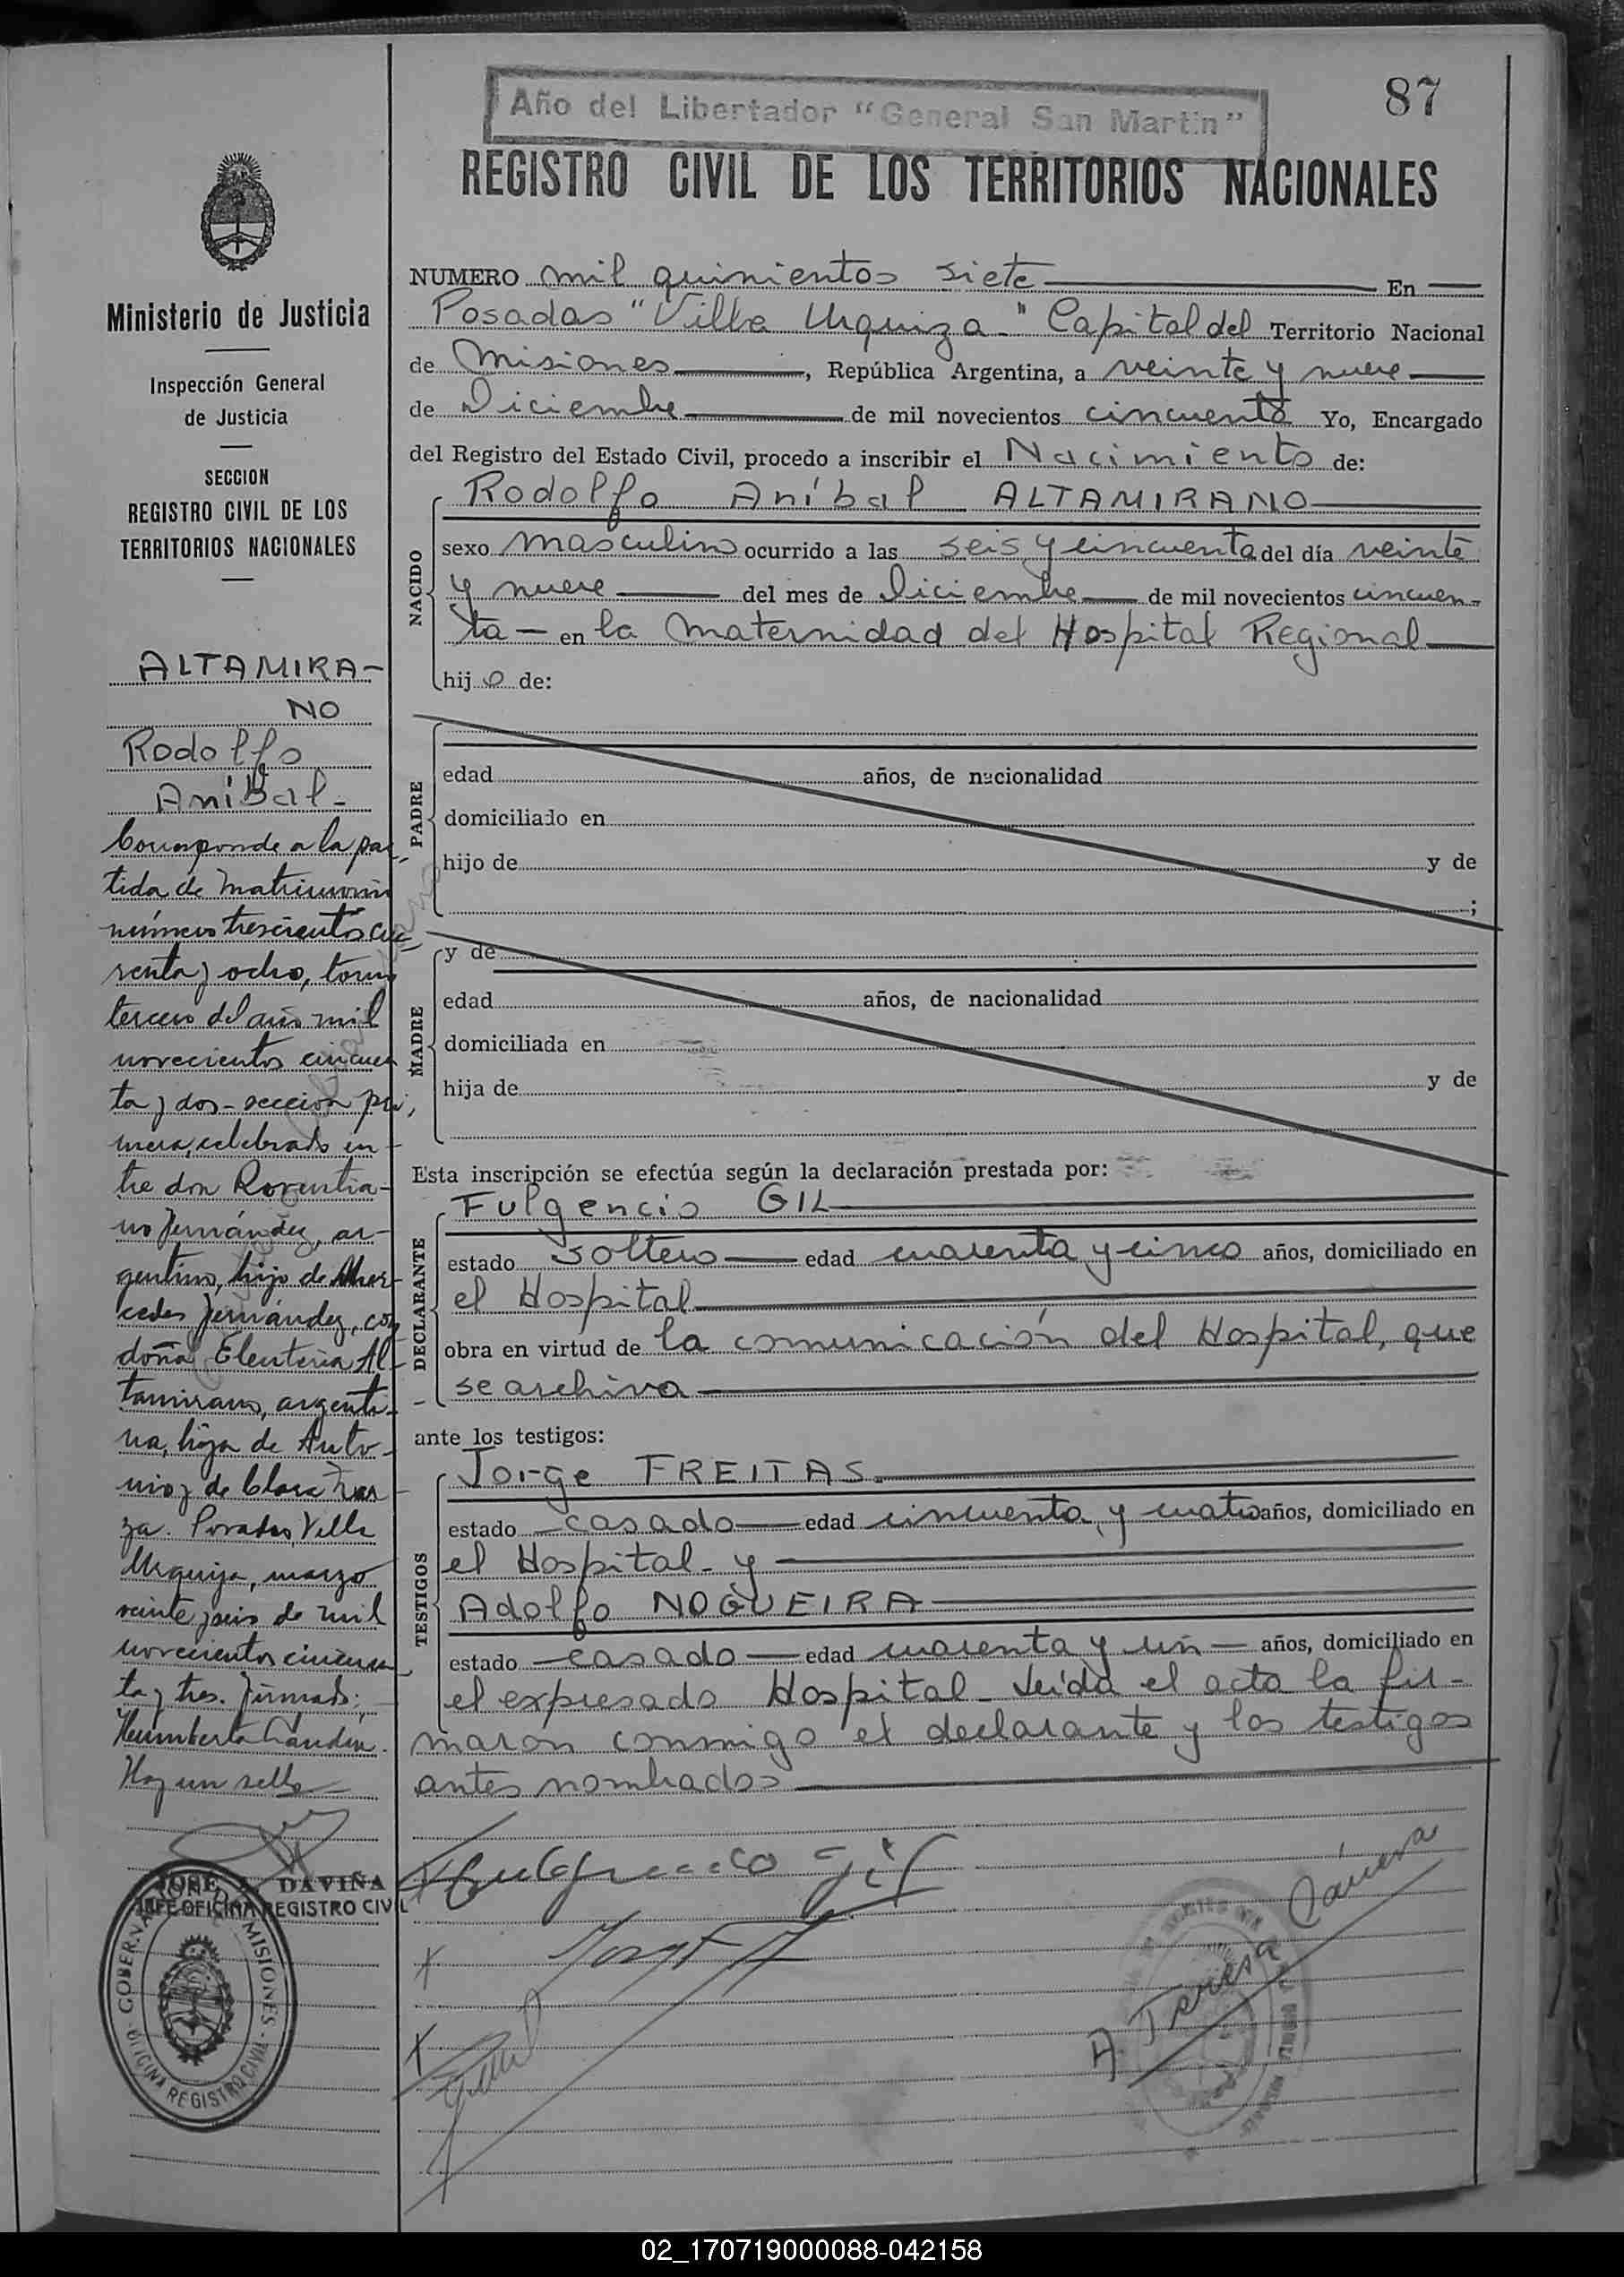 87
Año del Libertador "General San Martin"
REGISTRO CIVIL DE LOS TERRITORIOS NACIONALES
Ministerio de Justicia
Inspección General
de Justicia
SECCION
REGISTRO CIVIL DE LOS
TERRITORIOS NACIONALES
ALTAMIRA-
NO
Rodolfo
Anibal-
Corresponde a la par-
tida de matrimonio
número trescientos cua-
renta y ocho, tomo
tercero del año mil
novecientos cincuen
ta y dos-sección pri,
mera, celebrado en-
tre don
no Fernández, ar-
gentino, hijo de Mer-
cedes Fernández, con
doña Eleuteria Al-
tamirano, argenti-
na, hija de Anto-
nio y de Clara
za. Posadas, Villa
Urquiza, marzo
veinte y seis de mil
novecientos cincuen-
ta y tres. Firmado:
Humberto
Hay un sello
JOSE DAVIÑA
JEFE OFICINA REGISTRO CIVIL
GOBERNACION DE MISIONES - OFICINA REGISTRO CIVIL
NUMERO mil quinientos siete En
Posadas "Villa Urquiza-" Capital del Territorio Nacional
de Misiones, República Argentina, a veinte y nueve
de Diciembre de mil novecientos cincuenta Yo, Encargado
del Registro del Estado Civil, procedo a inscribir el Nacimiento de:
NACIDO
Rodolfo Aníbal ALTAMIRANO
sexo masculino ocurrido a las seis y cincuenta del día veinte
y nueve del mes de Diciembre de mil novecientos cincuen-
ta - en la Maternidad del Hospital Regional
hijo de:
PADRE
edad años, de nacionalidad
domiciliado en
hijo de y de
;
MADRE
y de
edad años, de nacionalidad
domiciliada en
hija de y de
Esta inscripción se efectúa según la declaración prestada por:
DECLARANTE
Fulgencio GIL
estado soltero edad cuarenta y cinco años, domiciliado en
el Hospital
obra en virtud de la comunicación del Hospital, que
se archiva
ante los testigos:
TESTIGOS
Jorge FREITAS.
estado casado edad cincuenta y cuatro años, domiciliado en
el Hospital- y
Adolfo NOGUEIRA
estado casado edad cuarenta y un años, domiciliado en
el expresado Hospital- Leída el acta la fir-
maron conmigo el declarante y los testigos
antes nombrados
Fulgencio Gil
A. Teresa
02_170719000088-042158